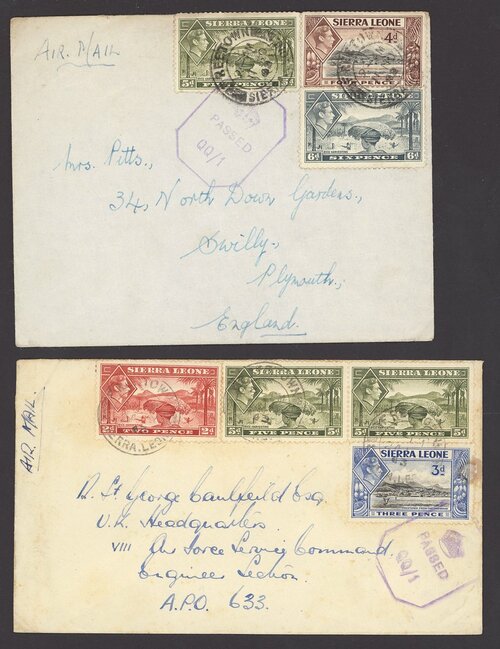 AIR MAIL
SIERRA LEONE
5d FIVE PENCE 5d
SIERRA LEONE
4d
FOUR PENCE
FREETOWN
PASSED
QQ/1
SIERRA LEONE
6d SIXPENCE 6d
RICE HARVESTING
Mrs. Pitts,
34, North Down Gardens,
Swilly,
Plymouth,
England.
AIR MAIL
SIERRA LEONE
2d TWO PENCE 2d
SIERRA LEONE
5d FIVE PENCE 5d
SIERRA LEONE
5d FIVE PENCE 5d
SIERRA LEONE
3d
THREE PENCE
R. St George Caulfeild Esq.
U.K. Headquarters
VIII Air Force Service Command
Engineer Section
A.P.O. 633.
PASSED
QQ/1